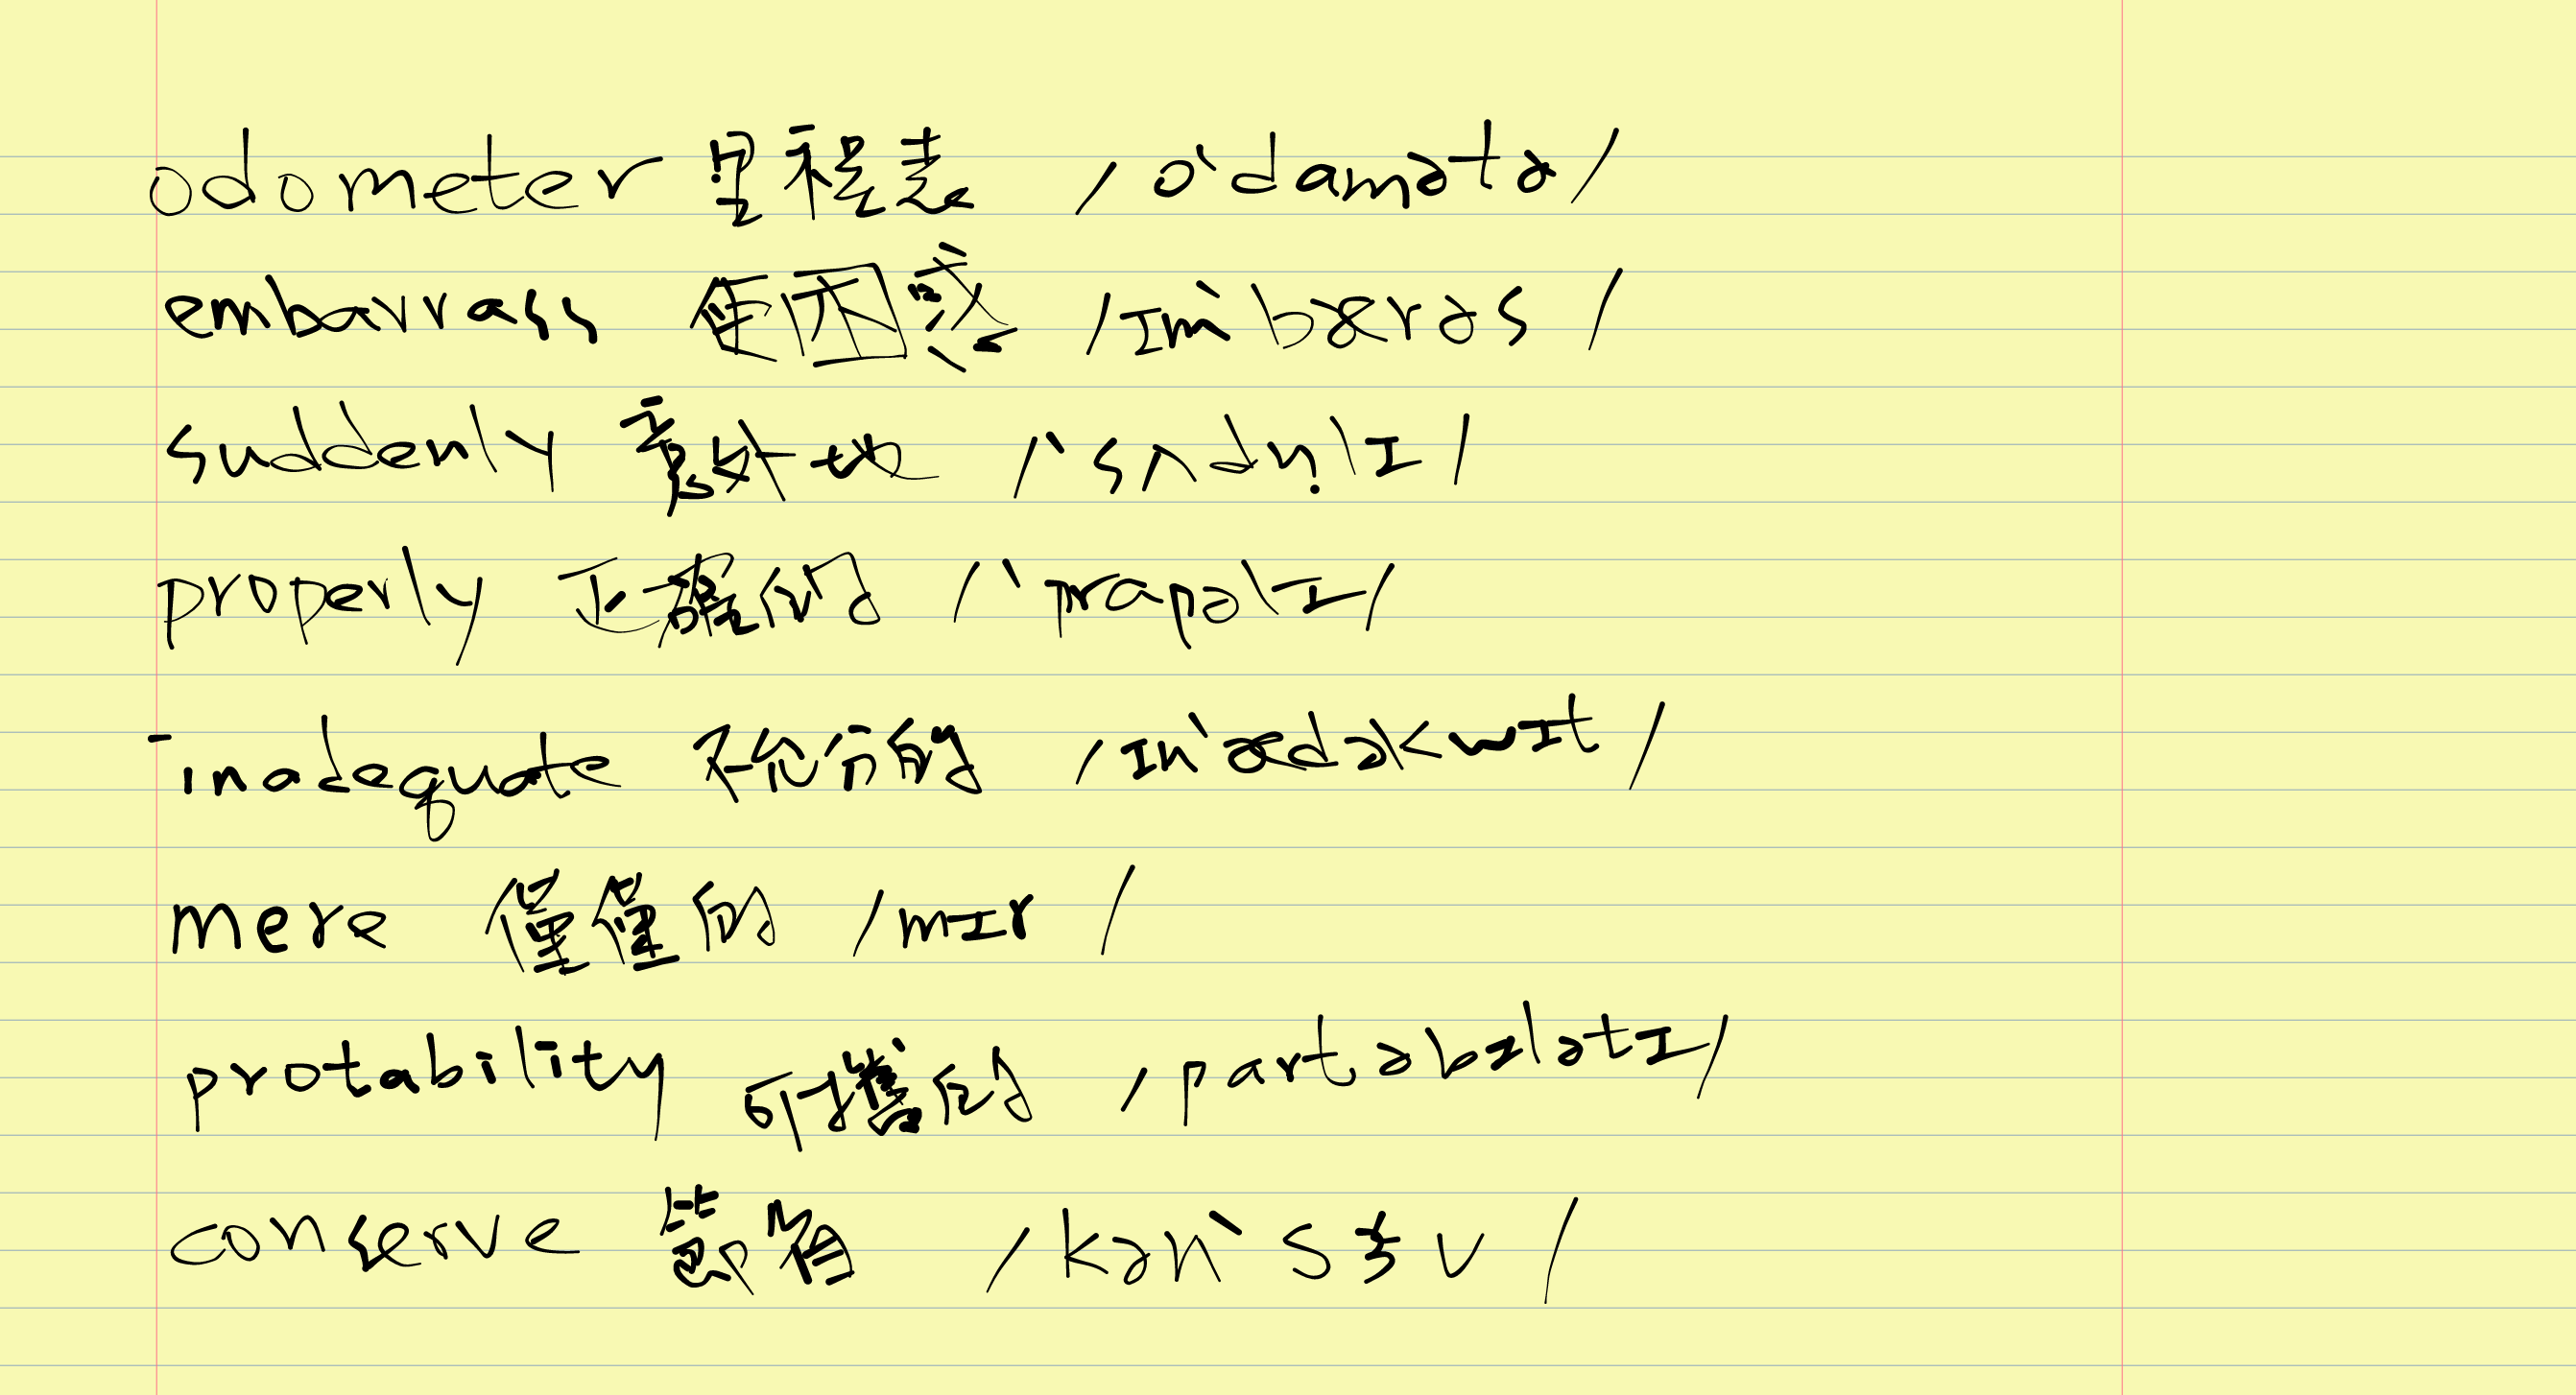 odometer 里程表 /o'damətɚ/
embarrass 使困惑 /ɪm'bærəs/
suddenly 意外地 /'sʌdn̩lɪ/
properly 正確的 /'prapəlɪ/
inadequate 不充分的 /ɪn'ædəkwɪt/
mere 僅僅的 /mɪr/
protability 可攜的 /partəbɪlətɪ/
conserve 節省 /kən'sɝv/